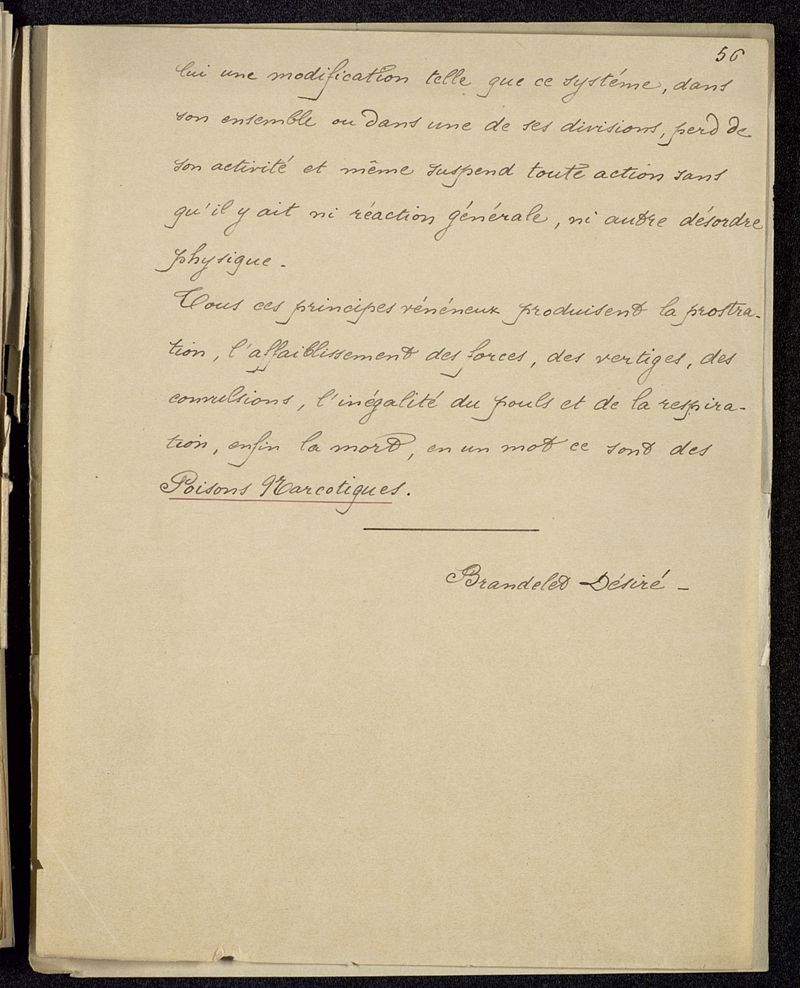 56
lui une modification telle que ce systéme, dans
son ensemble ou dans une de ses divisions, perd de
son activité et même suspend toute action sans
qu'il y ait ni réaction générale, ni autre désordre
physique.
Tous ces principes vénéneux produisent la prostra-
tion, l'affaiblissement des forces, des vertiges, des
convulsions, l'inégalité du pouls et de la respira-
tion, enfin la mort, en un mot ce sont des
Poisons Narcotiques.
Brandelet Désiré -